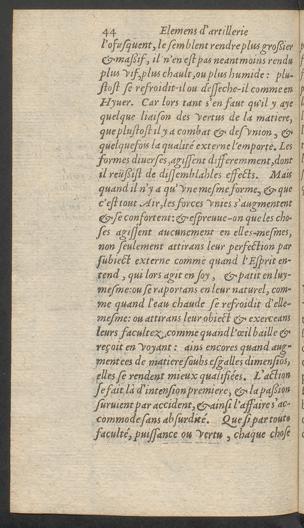 44 Elemens d'artillerie
l'ofusquent, le semblent rendre plus grossier
& massif, il n'en est pas neantmoins rendu
plus vif, plus chault, ou plus humide : plu-
stost se refroidit-il ou desseche-il comme en
Hyuer. Car lors tant s'en faut qu'il y aye
quelque liaison des vertus de la matiere,
que plustost il y a combat & desvnion, &
quelquefois la qualité externe l'emporte. Les
formes diuerses, agissent differemment, dont
il reüssist de dissemblables effects. Mais
quand il n'y a qu'vne mesme forme, & que
c'est tout Air, les forces vnies s'augmentent
& se confortent: & espreuue-on que les cho-
ses agissent aucunement en elles-mesmes,
non seulement attirans leur perfection par
subiect externe comme quand l'Esprit en-
tend, qui lors agit en soy, & patit en luy-
mesme: ou se raportans en leur naturel, com-
me quand l'eau chaude se refroidit d'elle-
mesme: ou attirans leur obiect & exerceans
leurs facultez, comme quand l'œil baille &
reçoit en voyant : ains encores quand aug-
mentees de matiere soubs esgalles dimensiós,
elles se rendent mieux qualifiées. L'action
se fait là d'intension premiere, & la passion
suruient par accident, & ainsi l'affaire s'ac-
commode sans absurdité. Que si par toute
faculté, puissance ou vertu, chaque chose